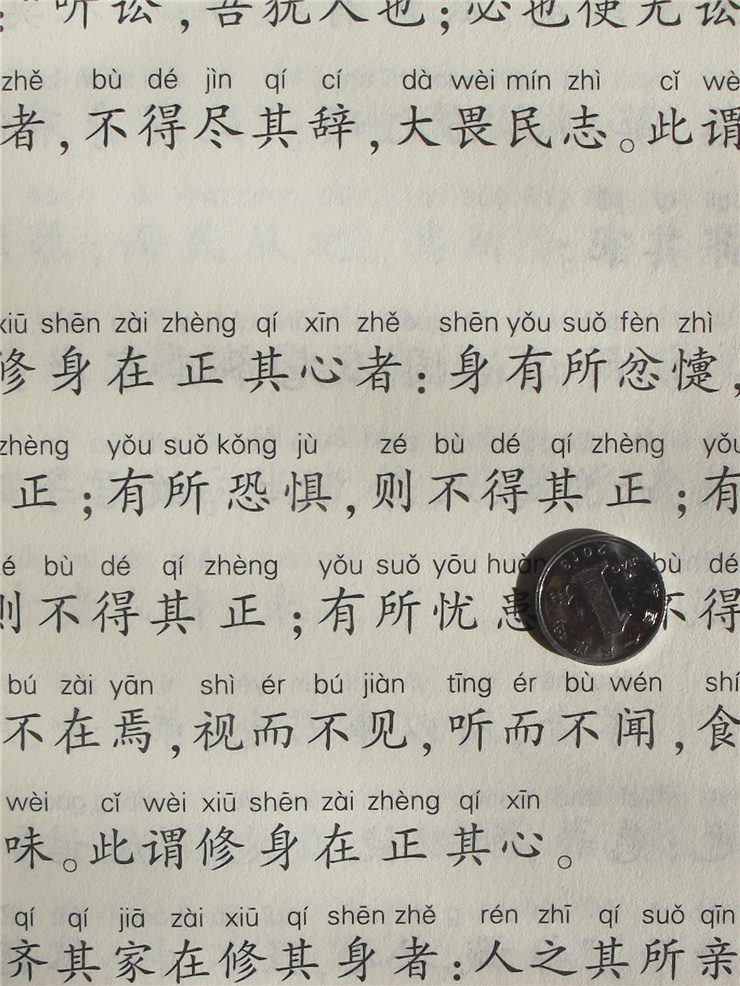 听讼，吾犹人也；必也使无讼
zhě bù dé jìn qí cí dà wèi mín zhì cǐ wè
者，不得尽其辞，大畏民志。此谓
xiū shēn zài zhèng qí xīn zhě shēn yǒu suǒ fèn zhì
修身在正其心者：身有所忿懥，
zhèng yǒu suǒ kǒng jù zé bù dé qí zhèng yǒu
正；有所恐惧，则不得其正；有
é bù dé qí zhèng yǒu suǒ yōu huàn bù dé
则不得其正；有所忧患 不得
bú zài yān shì ér bú jiàn tīng ér bù wén shí
不在焉，视而不见，听而不闻，食
wèi cǐ wèi xiū shēn zài zhèng qí xīn
味。此谓修身在正其心。
qí qí jiā zài xiū qí shēn zhě rén zhī qí suǒ qīn
齐其家在修其身者：人之其所亲